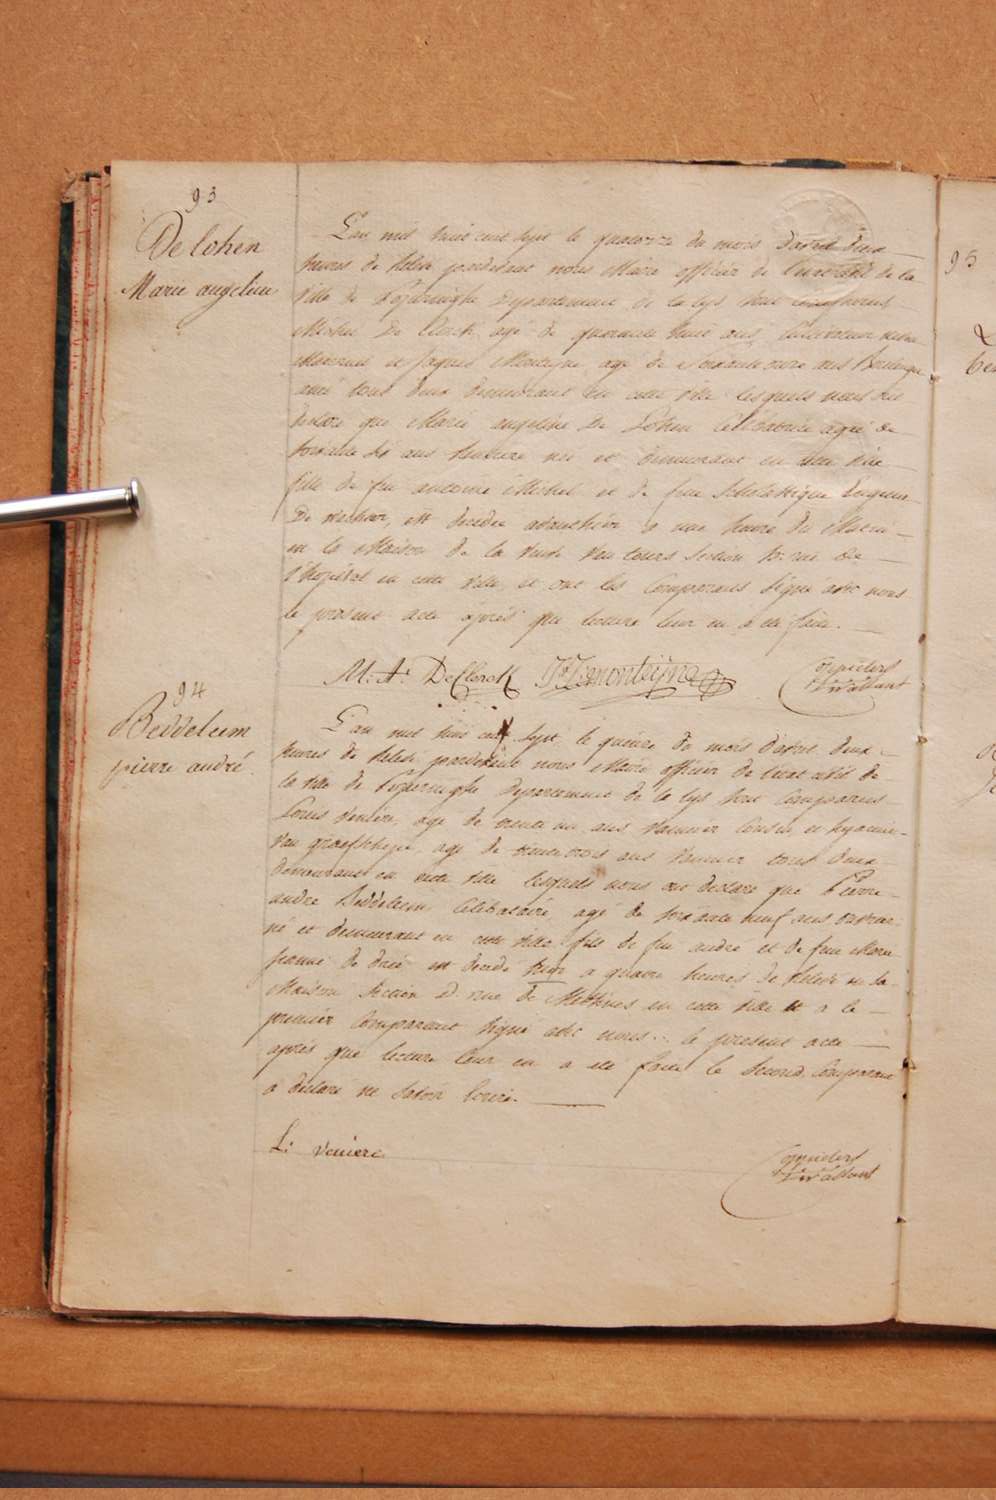 93
De Cohen
Marie angeline
L'an mil huit cent sept le quatorze du mois d'avril deux
heures de relevé pardevant nous Maire officier de l'Etat Civil de la
Ville de Poperinghe Departement de la Lys sont Comparus
Michel De Clerck agé de quarante huit ans, Cultivateur
et Jaques Monteyne agé de soixante onze ans Boulanger
ami tout deux demeurant en cette ville lesquels nous ont
declaré que Marie angeline De Cohen Celibatrice agée de
soixante six ans née et demeurant en cette ville
fille de feu antoine Michel et de feue Scholastique
De est decedée avanthier a une heure du Matin
en la Maison de la Veuve section b. rue de
l'hopital en cette ville, et ont les Comparants signé avec nous
le present acte après que lecture leur en a été faite.
M: A: DeClerck J: J: monteijne
94
Beddeleem
pierre andré
L'an mil huit cent sept le quinze du mois d'avril deux
heures de relevé pardevant nous Maire officier de l'etat civil de
la ville de Poperinghe Departement de la Lys sont Comparus
Louis veniere, agé de trente un ans Vannier Cousin et hyacinte
Van agé de trente trois ans Vannier tous deux
demeurant en cette ville lesquels nous ont declaré que Pierre
andre Beddeleem Celibataire, agé de soixante neuf ans
né et demeurant en cette ville fils de feu andré et de feue Marie
jeanne de est decedé hier a quatre heures de relevé en sa
Maison section d. rue de en cette ville et a le
premier Comparant signé avec nous le present acte
après que lecture leur en a été faite le second Comparant
a declaré ne savoir ecrire.
L: veniere
95